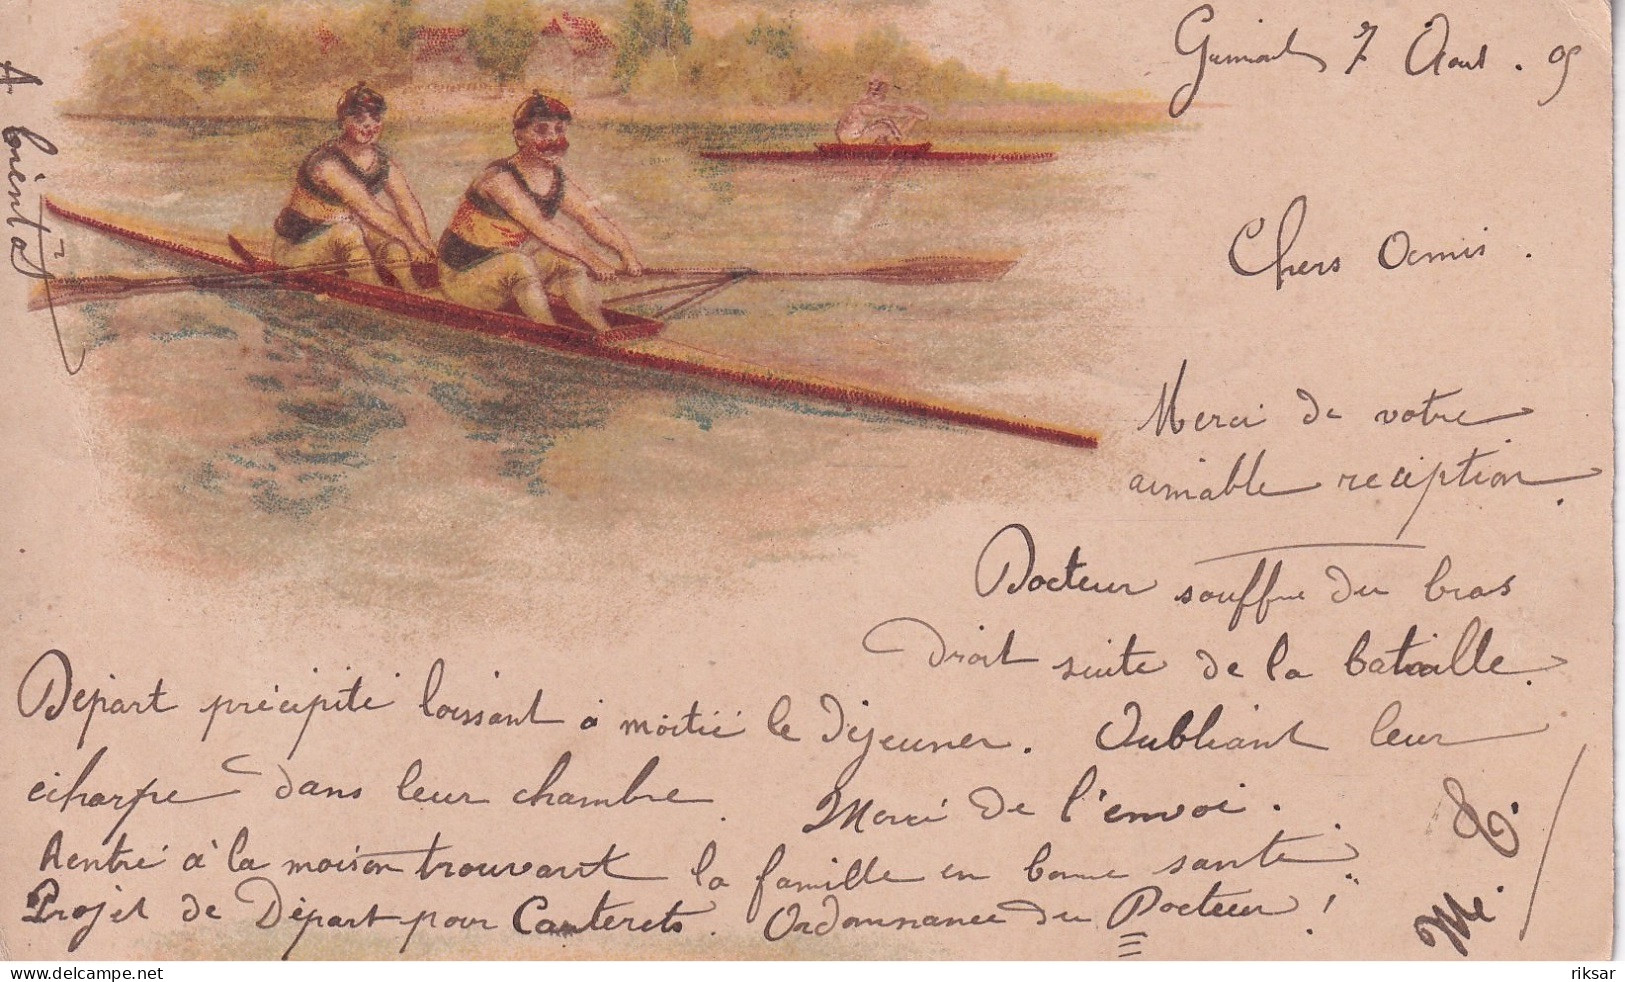 Gimont 7 Aout . 05
Chers Amis .
Merci de votre
aimable reception .
Docteur souffre du bras
droit suite de la bataille .
Départ précipité laissant à moitié le déjeuner . Oubliant leur
écharpe dans leur chambre . Merci de l'envoi .
Rentré à la maison trouvant la famille en bonne santé .
Projet de Départ pour Cauterets . Ordonnance du Docteur !
A bientôt
riksar